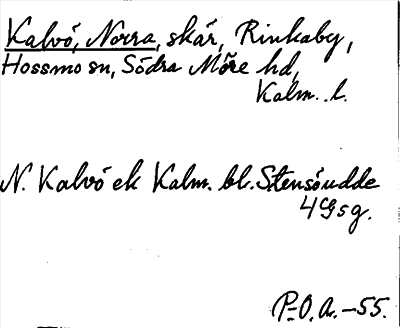 Kalvö, Norra, skär, Rinkaby,
Hossmo sn, Södra Möre hd,
Kalm. l.
N. Kalvö ek Kalm. bl. Stensöudde
4G5g.
P-O.A.-55.